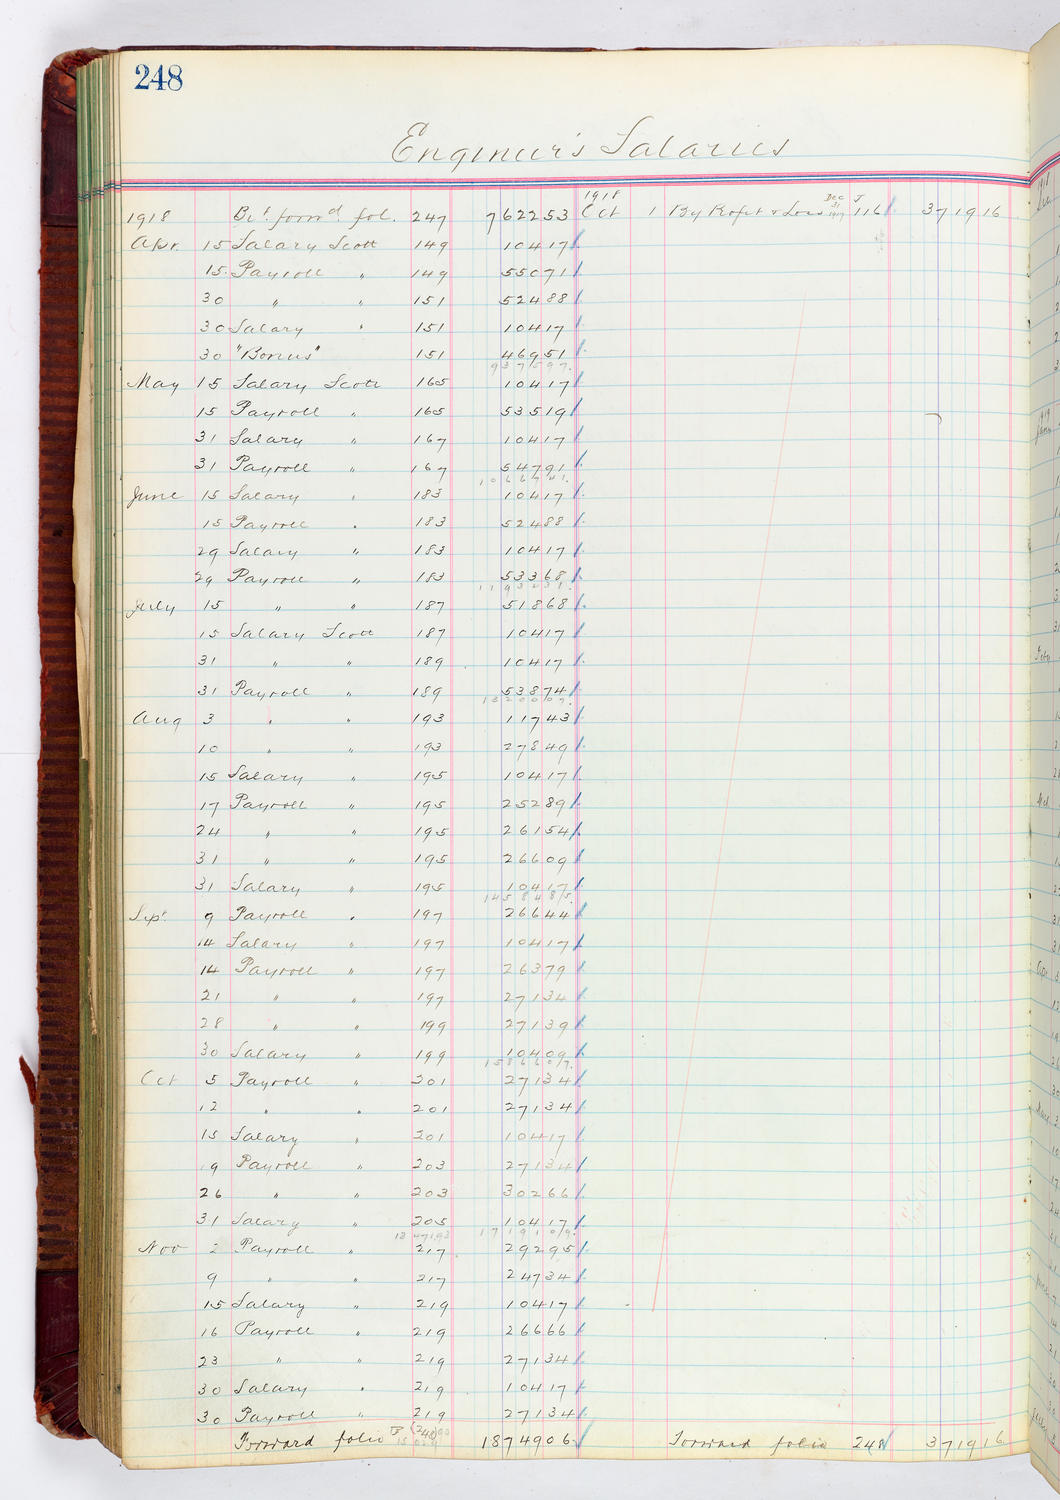 248
Engineer's Salaries
1918 Bt. forwd fol. 247 762253 1918 Oct 1 By Profit & Loss Dec 31 1917 J 116 371916
Apr. 15 Salary Scott 149 10417
15 Payroll " 149 55071
30 " " 151 52488
30 Salary " 151 10417
30 "Bonus" 151 46951
937597
May 15 Salary Scott 165 10417
15 Payroll " 165 53519
31 Salary " 167 10417
31 Payroll " 167 54791
1066741
June 15 Salary " 183 10417
15 Payroll " 183 52488
29 Salary " 183 10417
29 Payroll " 183 53368
1193431
July 15 " " 187 51868
15 Salary Scott 187 10417
31 " " 189 10417
31 Payroll " 189 53874
1320007
Aug 3 " " 193 11743
10 " " 193 27849
15 Salary " 195 10417
17 Payroll " 195 25289
24 " " 195 26154
31 " " 195 26609
31 Salary " 195 10417
1458485
Sept 9 Payroll " 197 26644
14 Salary " 197 10417
14 Payroll " 197 26379
21 " " 197 27134
28 " " 199 27139
30 Salary " 199 10409
1586607
Oct 5 Payroll " 201 27134
12 " " 201 27134
15 Salary " 201 10417
19 Payroll " 203 27134
26 " " 203 30266
31 Salary " 205 10417
1347193 1719109
Nov 2 Payroll " 217 29295
9 " " 217 24734
15 Salary " 219 10417
16 Payroll " 219 26666
23 " " 219 27134
30 Salary " 219 10417
30 Payroll " 219 27134
Forward folio (248) 1874906 Forward folio 248 371916